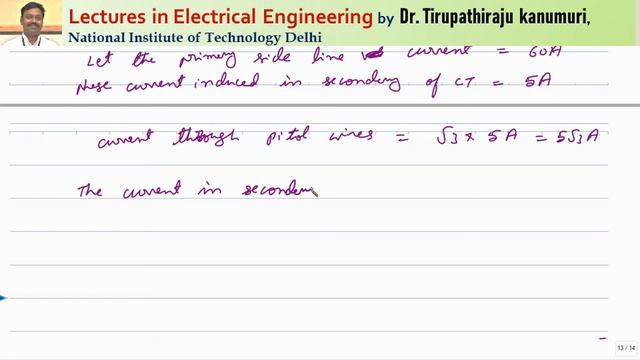 Lectures in Electrical Engineering by Dr. Tirupathiraju kanumuri,
National Institute of Technology Delhi
Let the primary side line current = 60A
phase current induced in secondary of CT = 5A
current through pitol wires = √3 x 5A = 5√3A
The current in secondary
13 / 14